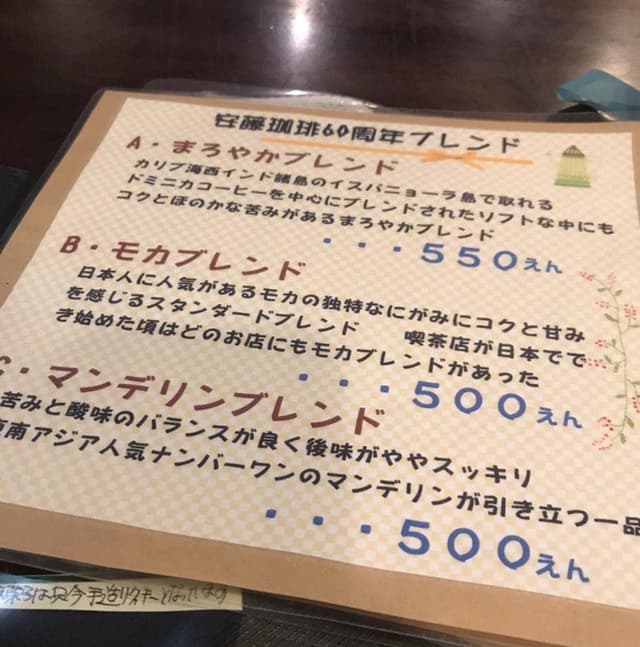 安藤珈琲60周年ブレンド
A・まろやかブレンド
カリブ海西インド諸島のイスパニョーラ島で取れる
ドミニカコーヒーを中心にブレンドされたソフトな中にも
コクとほのかな苦みがあるまろやかブレンド
・・・550えん
B・モカブレンド
日本人に人気があるモカの独特なにがみにコクと甘み
を感じるスタンダードブレンド 喫茶店が日本でで
き始めた頃はどのお店にもモカブレンドがあった
・・・500えん
C・マンデリンブレンド
苦みと酸味のバランスが良く後味がややスッキリ
東南アジア人気ナンバーワンのマンデリンが引き立つ一品
・・・500えん
手造りクッキーとなっています